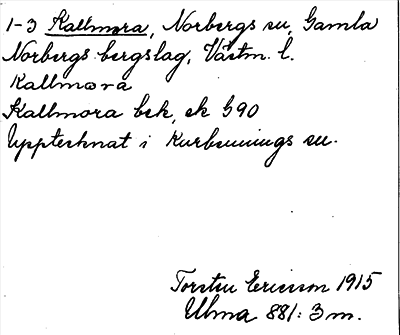 1-3 Kallmora, Norbergs sn, Gamla
Norbergs bergslag, Västm. l.
Kallmora
Kallmora bek, ek 590
Upptecknat i Karbennings sn.
Torsten Ericsson 1915
Ulma 881: 3 m.